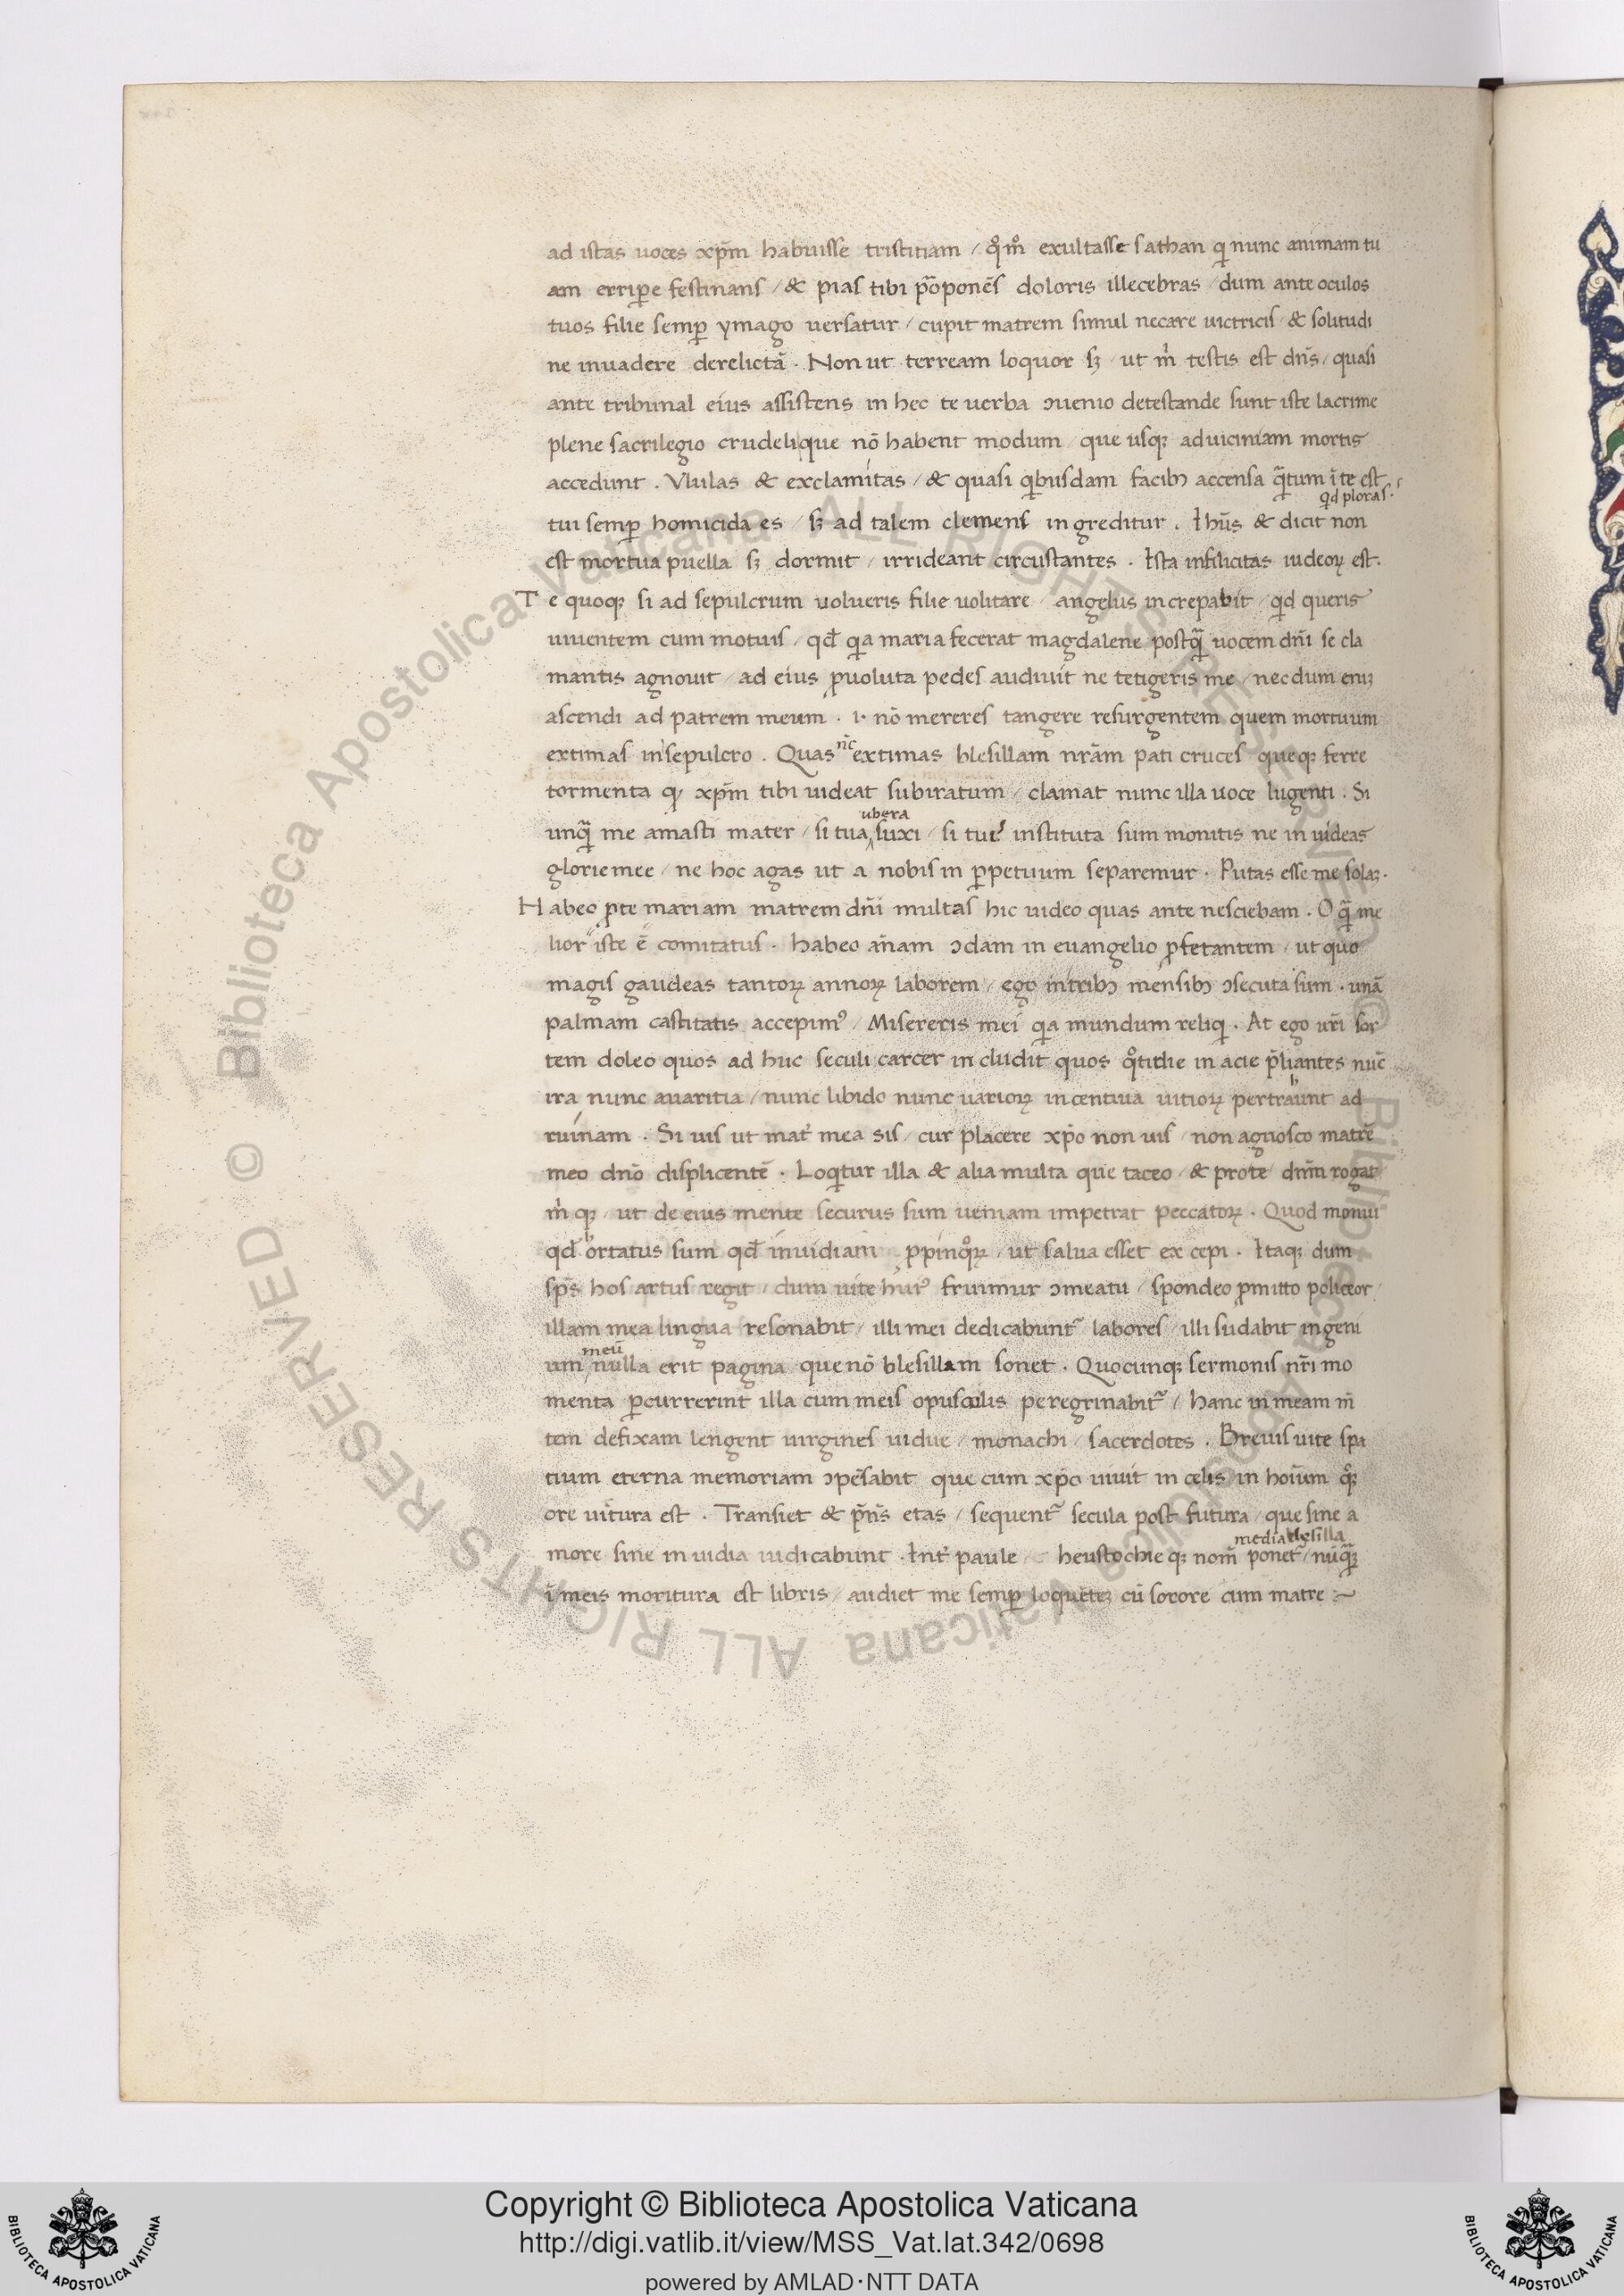 ad istas uoces xp̄m habuisse tristitiam / qͦmͦ exultasse sathan qi nunc animam tu
am erriꝑe festinans / & pias tibi p̄oponēs doloris illecebras / dum ante oculos
tuos filie semꝑ ymago uersatur / cupit matrem simul necare uictricis / & solitudi
ne inuadere derelictā . Non ut terream loquor sꝫ / ut mⁱ testis est dn̄s / quasi
ante tribunal eius assistens in hec te uerba ↄuenio detestande sunt iste lacrime
plene sacrilegio crudelique nō habent modum / que usqꝫ aduiciniam mortis
accedunt . Vlulas & exclamitas / & quasi qⁱbusdam facibꝫ accensa qᵃ̄tum ī te est
qd ploras .
tui semꝑ homicida es / sꝫ ad talem clemens ingreditur . Ihūs & dicit non
est mortua puella sꝫ dormit / irrideant circustantes . Ista infilicitas iudeoꝝ est .
Te quoqꝫ si ad sepulcrum uolueris filie uolitare / angelus increpabit / qⁱd queris
uiuentem cum motuis / qđ qⁱa maria fecerat magdalene postqᵃ̄ uocem dn̄i se cla
mantis agnouit / ad eius ꝓuoluta pedes audiuit ne tetigeris me / necdum eniꝫ
ascendi ad patrem meum . i . nō mereres tangere resurgentem quem mortuum
extimas in sepulcro . Quas nc̄ extimas blesillam nrām pati cruces queqꝫ ferre
tormenta qꝫ xp̄m tibi uideat subiratum / clamat nunc illa uoce lugenti . Si
ubera
unqᵃ̄ me amasti mater / si tua suxi / si tuis instituta sum monitis ne inuideas
glorie mee / ne hoc agas ut a nobis in ꝑpetuum separemur . Putas esse me solaꝫ .
Habeo ꝓte mariam matrem dn̄i multas hic uideo quas ante nesciebam . O qᵃ̄ me
lior iste ē comitatus . habeo an̄am ↄdam in euangelio ꝓfetantem / ut quo
magis gaudeas tantoꝝ annoꝝ laborem / ego in tribꝫ mensibꝫ ↄsecuta sum . unā
palmam castitatis accepimꝰ / Misereris mei qⁱa mundum reliqⁱ . At ego ur̄i sor
tem doleo quos ad huc seculi carcer in cludit quos qͦtidie in acie p̄liantes nūc
ira nunc auaritia / nunc libido nunc uarioꝝ incentiua uitioꝝ pertraʰunt ad
ruinam . Si uis ut mat̄ mea sis / cur placere xp̄o non uis / non agnosco matrē
meo dn̄o displicentē . Loqⁱtur illa & alia multa que taceo / & pro te dn̄m rogat
mⁱ qꝫ / ut de eius mente securus sum ueniam impetrat peccatoꝝ . Quod monui
qđ ʰortatus sum qđ inuidiam ꝓpinqͦꝝ / ut salua esset ex cepi . Itaqꝫ dum
sp̄s hos artus regit / dum uite huiꝰ fruimur ↄmeatu / spondeo ꝓmitto policeor /
illam mea lingua resonabit / illi mei dedicabunt᷑ labores / illi sudabit ingeni
meū
um nulla erit pagina que nō blesillam sonet . Quocunqꝫ sermonis nr̄i mo
menta ꝑcurrerint illa cum meis opusculis peregrinabit᷑ / hanc in meam m̄
tem defixam lengent uirgines uidue / monachi / sacerdotes . Breuis uite spa
tium eterna memoriam ↄpēsabit que cum xp̄o uiuit in celis in hoīum qͦꝫ
ore uitura est . Transiet & p̄n̄s etas / sequent᷑ secula post futura / que sine a
more sine inuidia iudicabunt . Int̄ paule heustochie qꝫ nom̄ ponet᷑ / nūqᵃ̄ꝫ
media blesilla
ī meis moritura est libris / audiet me semꝑ loquēteꝫ cū sorore cum matre ~
© Biblioteca Apostolica Vaticana ALL RIGHTS RESERVED © Biblioteca Apostolica Vaticana ALL RIGHTS RESERVED
Copyright © Biblioteca Apostolica Vaticana
http://digi.vatlib.it/view/MSS_Vat.lat.342/0698
powered by AMLAD·NTT DATA
BIBLIOTECA APOSTOLICA VATICANA
BIBLIOTECA APOSTOLICA VATICANA